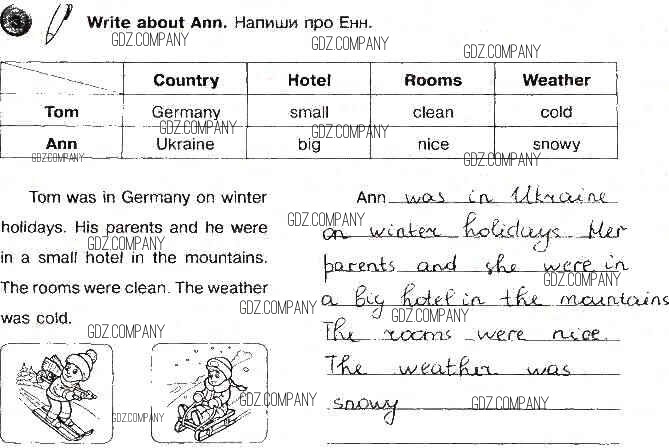 Write about Ann. Напиши про Енн.
GDZ.COMPANY
GDZ.COMPANY
GDZ.COMPANY
Country Hotel Rooms Weather
Tom Germany small clean cold
GDZ.COMPANY
GDZ.COMPANY
Ann Ukraine big nice snowy
GDZ.COMPANY
GDZ.COMPANY
Tom was in Germany on winter
holidays. His parents and he were
in a small hotel in the mountains.
The rooms were clean. The weather
was cold.
GDZ.COMPANY
GDZ.COMPANY
GDZ.COMPANY
Ann was in Ukraine
on winter holidays. Her
parents and she were in
a big hotel in the mountains
The rooms were nice.
The weather was
snowy
GDZ.COMPANY
GDZ.COMPANY
GDZ.COMPANY
GDZ.COMPANY
GDZ.COMPANY
GDZ.COMPANY
GDZ.COMPANY